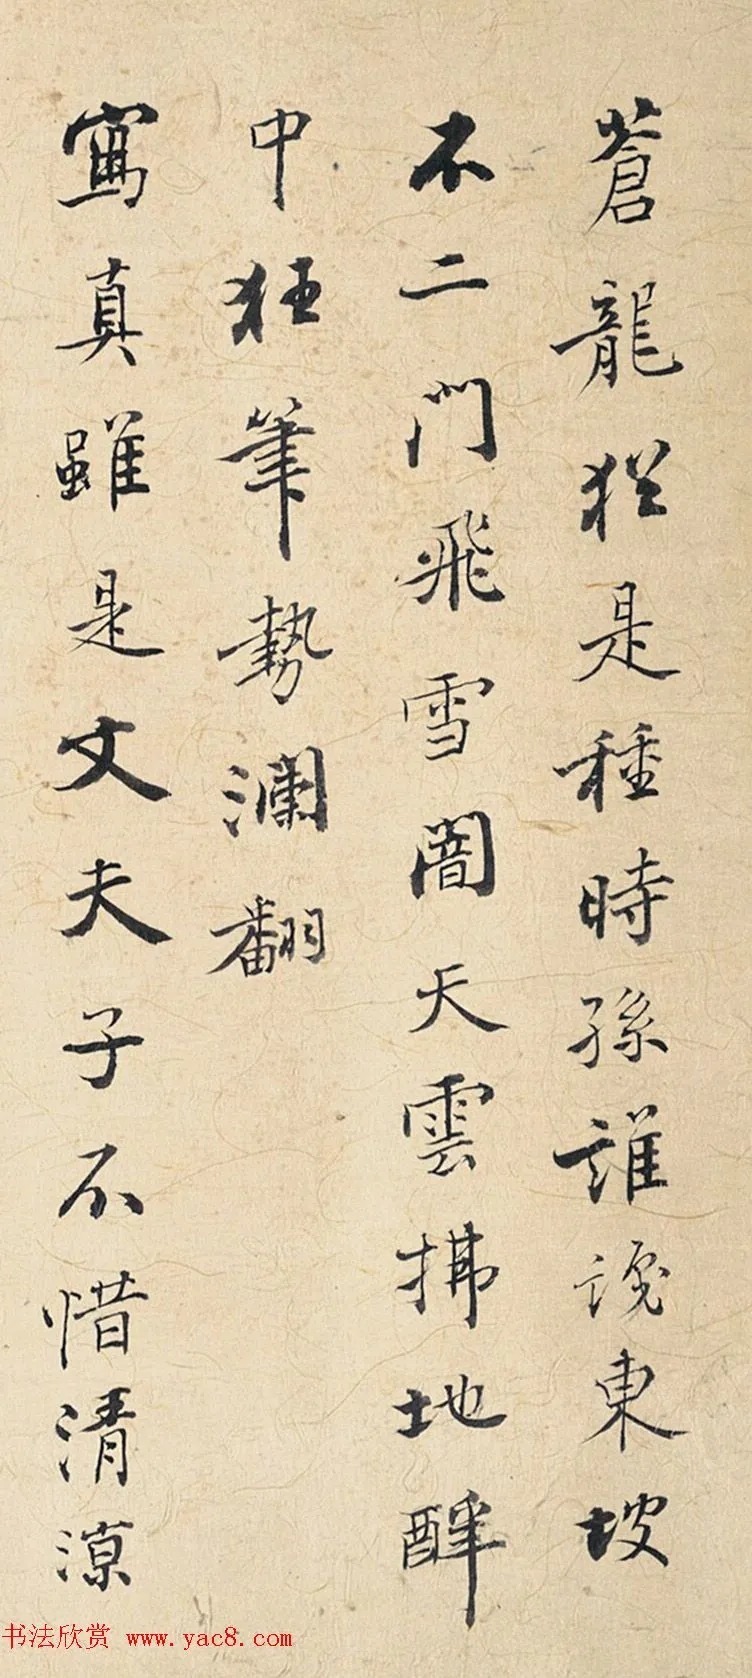 蒼龍猶是種時孫誰說東坡
不二門飛雪闇天雲拂地醉
中狂筆勢瀾翻
寫真雖是文夫子不惜清涼
书法欣赏 www.yac8.com